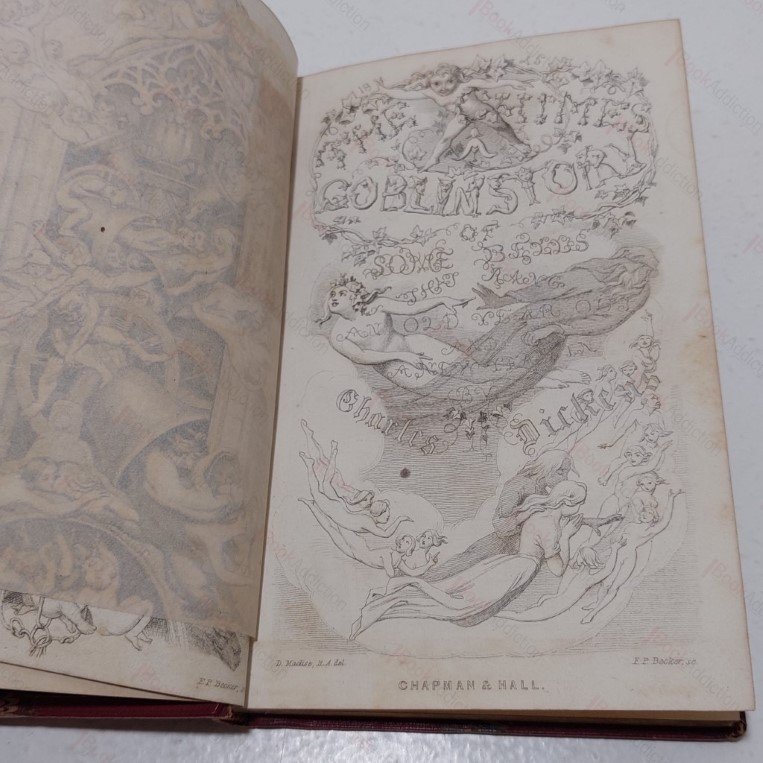 THE CHIMES
A
GOBLIN STORY
OF
SOME BELLS
THAT RANG
AN OLD YEAR OUT
AND A NEW YEAR IN
BY
Charles Dickens
D. Maclise, R.A. del.
F. P. Becker, sc.
CHAPMAN & HALL.
F. P. Becker, s
BookAddiction